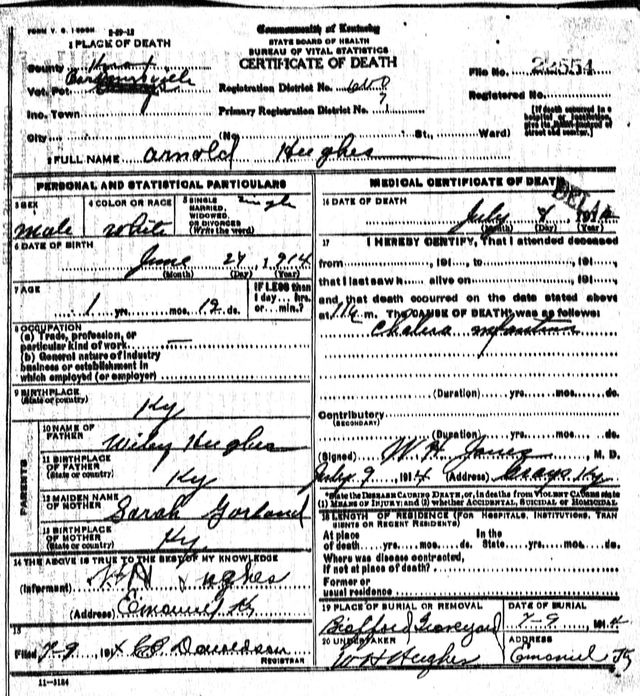 FORM V. S.
Commonwealth of Kentucky
STATE BOARD OF HEALTH
BUREAU OF VITAL STATISTICS
CERTIFICATE OF DEATH
1 PLACE OF DEATH
County Knox
Vot. Pct. Barbourville
Inc. Town
City (No. St., Ward)
Registration District No.
Primary Registration District No.
File No. 22554
Registered No.
[If death occurred in a hospital or institution, give its NAME instead of street and number.]
2 FULL NAME Arnold Hughes
PERSONAL AND STATISTICAL PARTICULARS
3 SEX Male
4 COLOR OR RACE White
5 SINGLE, MARRIED, WIDOWED, OR DIVORCED (Write the word) Single
6 DATE OF BIRTH
June 27, 1914
(Month) (Day) (Year)
7 AGE
1 yrs. mos. 12 ds.
IF LESS than 1 day... hrs. or... min.?
8 OCCUPATION
(a) Trade, profession, or
particular kind of work —
(b) General nature of industry
business or establishment in
which employed (or employer)
9 BIRTHPLACE
(State or country) Ky
PARENTS
10 NAME OF FATHER Wiley Hughes
11 BIRTHPLACE OF FATHER (State or country) Ky
12 MAIDEN NAME OF MOTHER Sarah Garland
13 BIRTHPLACE OF MOTHER (State or country) Ky.
14 THE ABOVE IS TRUE TO THE BEST OF MY KNOWLEDGE
(Informant) Hughes
(Address) Emanuel Ky
15
Filed 7-9 1914 Donaldson
REGISTRAR
11-3184
MEDICAL CERTIFICATE OF DEATH
DELAYED
16 DATE OF DEATH
July 8, 1914
(Month) (Day) (Year)
17 I HEREBY CERTIFY, That I attended deceased
from , 191 , to , 191 ,
that I last saw h alive on , 191 ,
and that death occurred on the date stated above
at m. The CAUSE OF DEATH* was as follows:
Cholera Infantum
(Duration) yrs. mos. ds.
Contributory
(SECONDARY)
(Duration) yrs. mos. ds.
(Signed) W. H. Jones, M. D.
July 9, 1914 (Address) Grays Ky
*State the DISEASE CAUSING DEATH, or, in deaths from VIOLENT CAUSES state
(1) MEANS OF INJURY; and (2) whether ACCIDENTAL, SUICIDAL or HOMICIDAL
18 LENGTH OF RESIDENCE (FOR HOSPITALS, INSTITUTIONS, TRANSIENTS OR RECENT RESIDENTS)
At place In the
of death yrs. mos. ds. State yrs. mos. ds.
Where was disease contracted,
if not at place of death?
Former or
usual residence
19 PLACE OF BURIAL OR REMOVAL
Graveyard
DATE OF BURIAL
7-9 1914
20 UNDERTAKER
W H Hughes
ADDRESS
Emanuel Ky